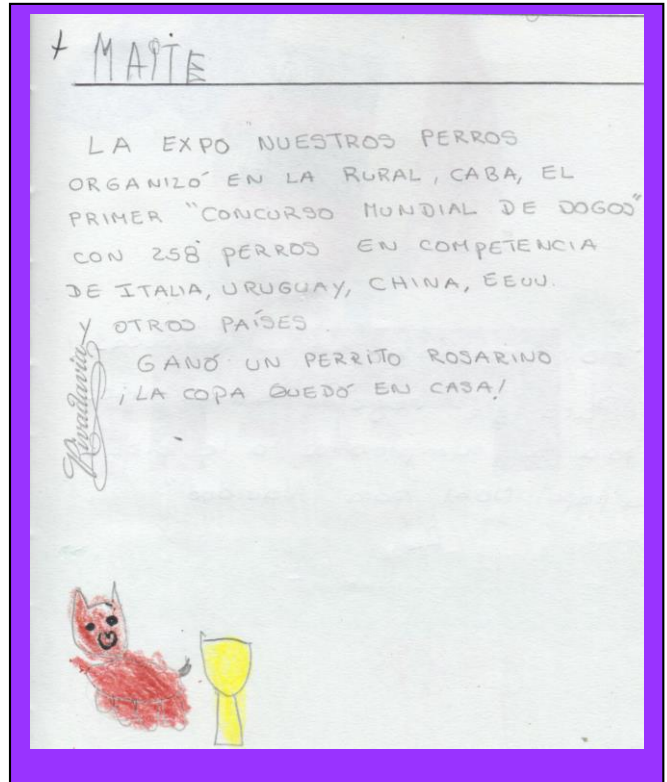 + MAITE
LA EXPO "NUESTROS PERROS
ORGANIZÓ EN LA RURAL, CABA, EL
PRIMER "CONCURSO MUNDIAL DE DOGOS"
CON 258 PERROS EN COMPETENCIA
DE ITALIA, URUGUAY, CHINA, EEUU.
Y OTROS PAÍSES.
GANÓ UN PERRITO ROSARINO
¡LA COPA QUEDÓ EN CASA!
Rivadavia